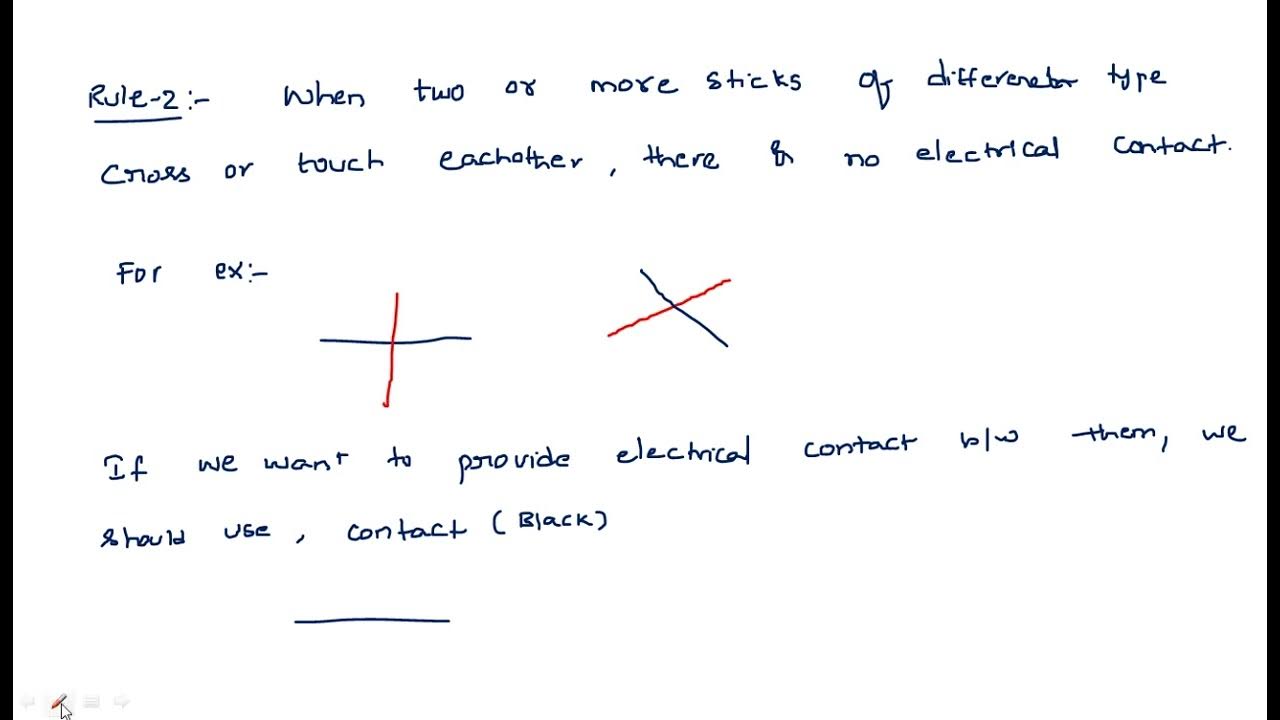 Rule-2:- When two or more sticks of different type
Cross or touch eachother, there is no electrical contact.
For ex:-
If we want to provide electrical contact b/w them, we
should use, contact (Black)